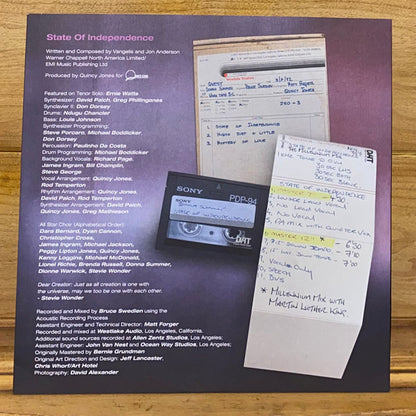 State Of Independence
Written and Composed by Vangelis and Jon Anderson
Warner Chappell North America Limited/
EMI Music Publishing Ltd
Produced by Quincy Jones for
Featured on Tenor Solo: Ernie Watts
Synthesizer: David Paich, Greg Phillinganes
Synclavier II: Don Dorsey
Drums: Ndugu Chancler
Bass: Louis Johnson
Synthesizer Programming:
Steve Porcaro, Michael Boddicker,
Don Dorsey
Percussion: Paulinho Da Costa
Drum Programming: Michael Boddicker
Background Vocals: Richard Page,
James Ingram, Bill Champlin,
Steve George
Vocal Arrangement: Quincy Jones,
Rod Temperton
Rhythm Arrangement: Quincy Jones,
David Paich, Rod Temperton
Synthesizer Arrangement: David Paich,
Quincy Jones, Greg Mathieson
All Star Choir (Alphabetical Order):
Dara Bernard, Dyan Cannon,
Christopher Cross,
James Ingram, Michael Jackson,
Peggy Lipton Jones, Quincy Jones,
Kenny Loggins, Michael McDonald,
Lionel Richie, Brenda Russell, Donna Summer,
Dionne Warwick, Stevie Wonder
Dear Creator: Just as all creation is one with
the universe, may we too be one with each other.
- Stevie Wonder
Recorded and Mixed by Bruce Swedien using the
Acoustic Recording Process
Assistant Engineer and Technical Director: Matt Forger
Recorded and mixed at Westlake Audio, Los Angeles, California.
Additional sound sources recorded at Allen Zentz Studios, Los Angeles;
Assistant Engineer: John Van Nest and Ocean Way Studios, Los Angeles;
Originally Mastered by Bernie Grundman
Original Art Direction and Design: Jeff Lancaster,
Chris Whorf/Art Hotel
Photography: David Alexander
Quincy Jones
1. STATE OF INDEPENDENCE
3. MYSTERY OF LOVE
SONY PDP-94
SONY
DONNA SUMMER
STATE OF INDEPENDENCE
DAT
DAT
STATE OF INDEPENDENCE
4:30
6:30
7:00
7:00
SPEECH
BVS
* MILLENNIUM MIX WITH
MARTIN LUTHER KING.